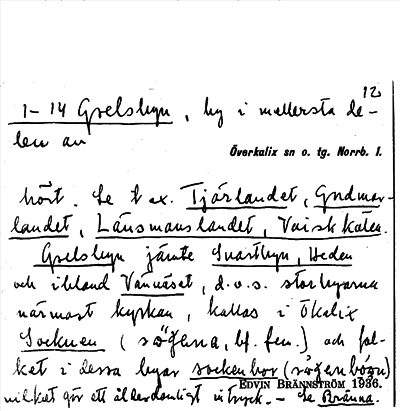 12
1-14 Grelsbyn, by i mellersta de-
len av
Överkalix sn o. tg. Norrb. l.
hört. Se t ex. Tjärlandet, Gudmor-
landet, Länsmanslandet, Vaisk Käten.
Grelsbyn jämte Svartbyn, Heden
och ibland Vännäset, d.v.s. storbyarna
närmast kyrkan, kallas i Ökalix
Socknen (                , bf. fem.) och fol-
ket i dessa byar sockenbor (                )
EDVIN BRÄNNSTRÖM 1936.
vilket gör ett ålderdomligt intryck. – Se Bränna.